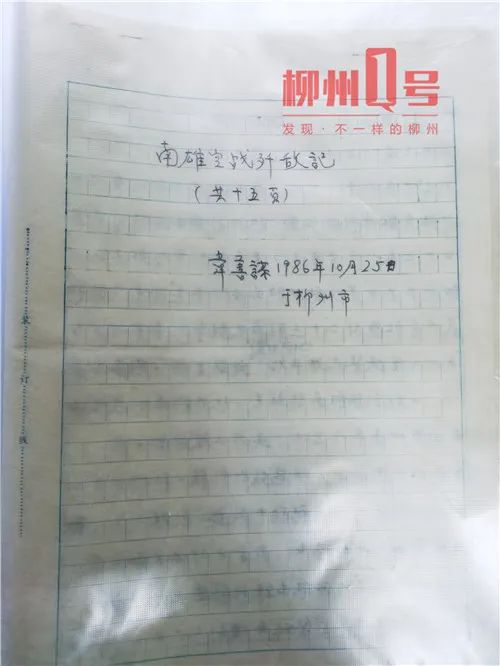 柳州1号
发现·不一样的柳州
南雄空战歼敌記
(共十五页)
韋善謀1986年10月25日
于柳州市
装订线